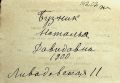 Бузник
Наталья
Давидовна
1900
Ливадовская 11